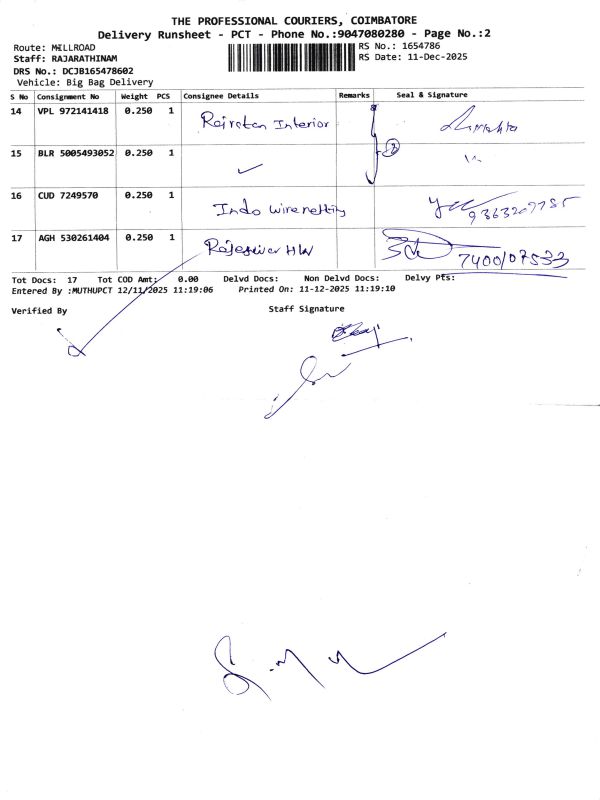 THE PROFESSIONAL COURIERS, COIMBATORE
Delivery Runsheet - PCT - Phone No.:9047080280 - Page No.:2
Route: MILLROAD RS No.: 1654786
Staff: RAJARATHINAM RS Date: 11-Dec-2025
DRS No.: DCJB165478602
Vehicle: Big Bag Delivery
S No Consignment No Weight PCS Consignee Details Remarks Seal & Signature
14 VPL 972141418 0.250 1 Rajratan Interior
15 BLR 5005493052 0.250 1
16 CUD 7249570 0.250 1 Indo wirenetting 9363207785
17 AGH 530261404 0.250 1 Rajeswar H/W 7400107533
Tot Docs: 17 Tot COD Amt: 0.00 Delvd Docs: Non Delvd Docs: Delvy Pts:
Entered By :MUTHUPCT 12/11/2025 11:19:06 Printed On: 11-12-2025 11:19:10
Verified By Staff Signature